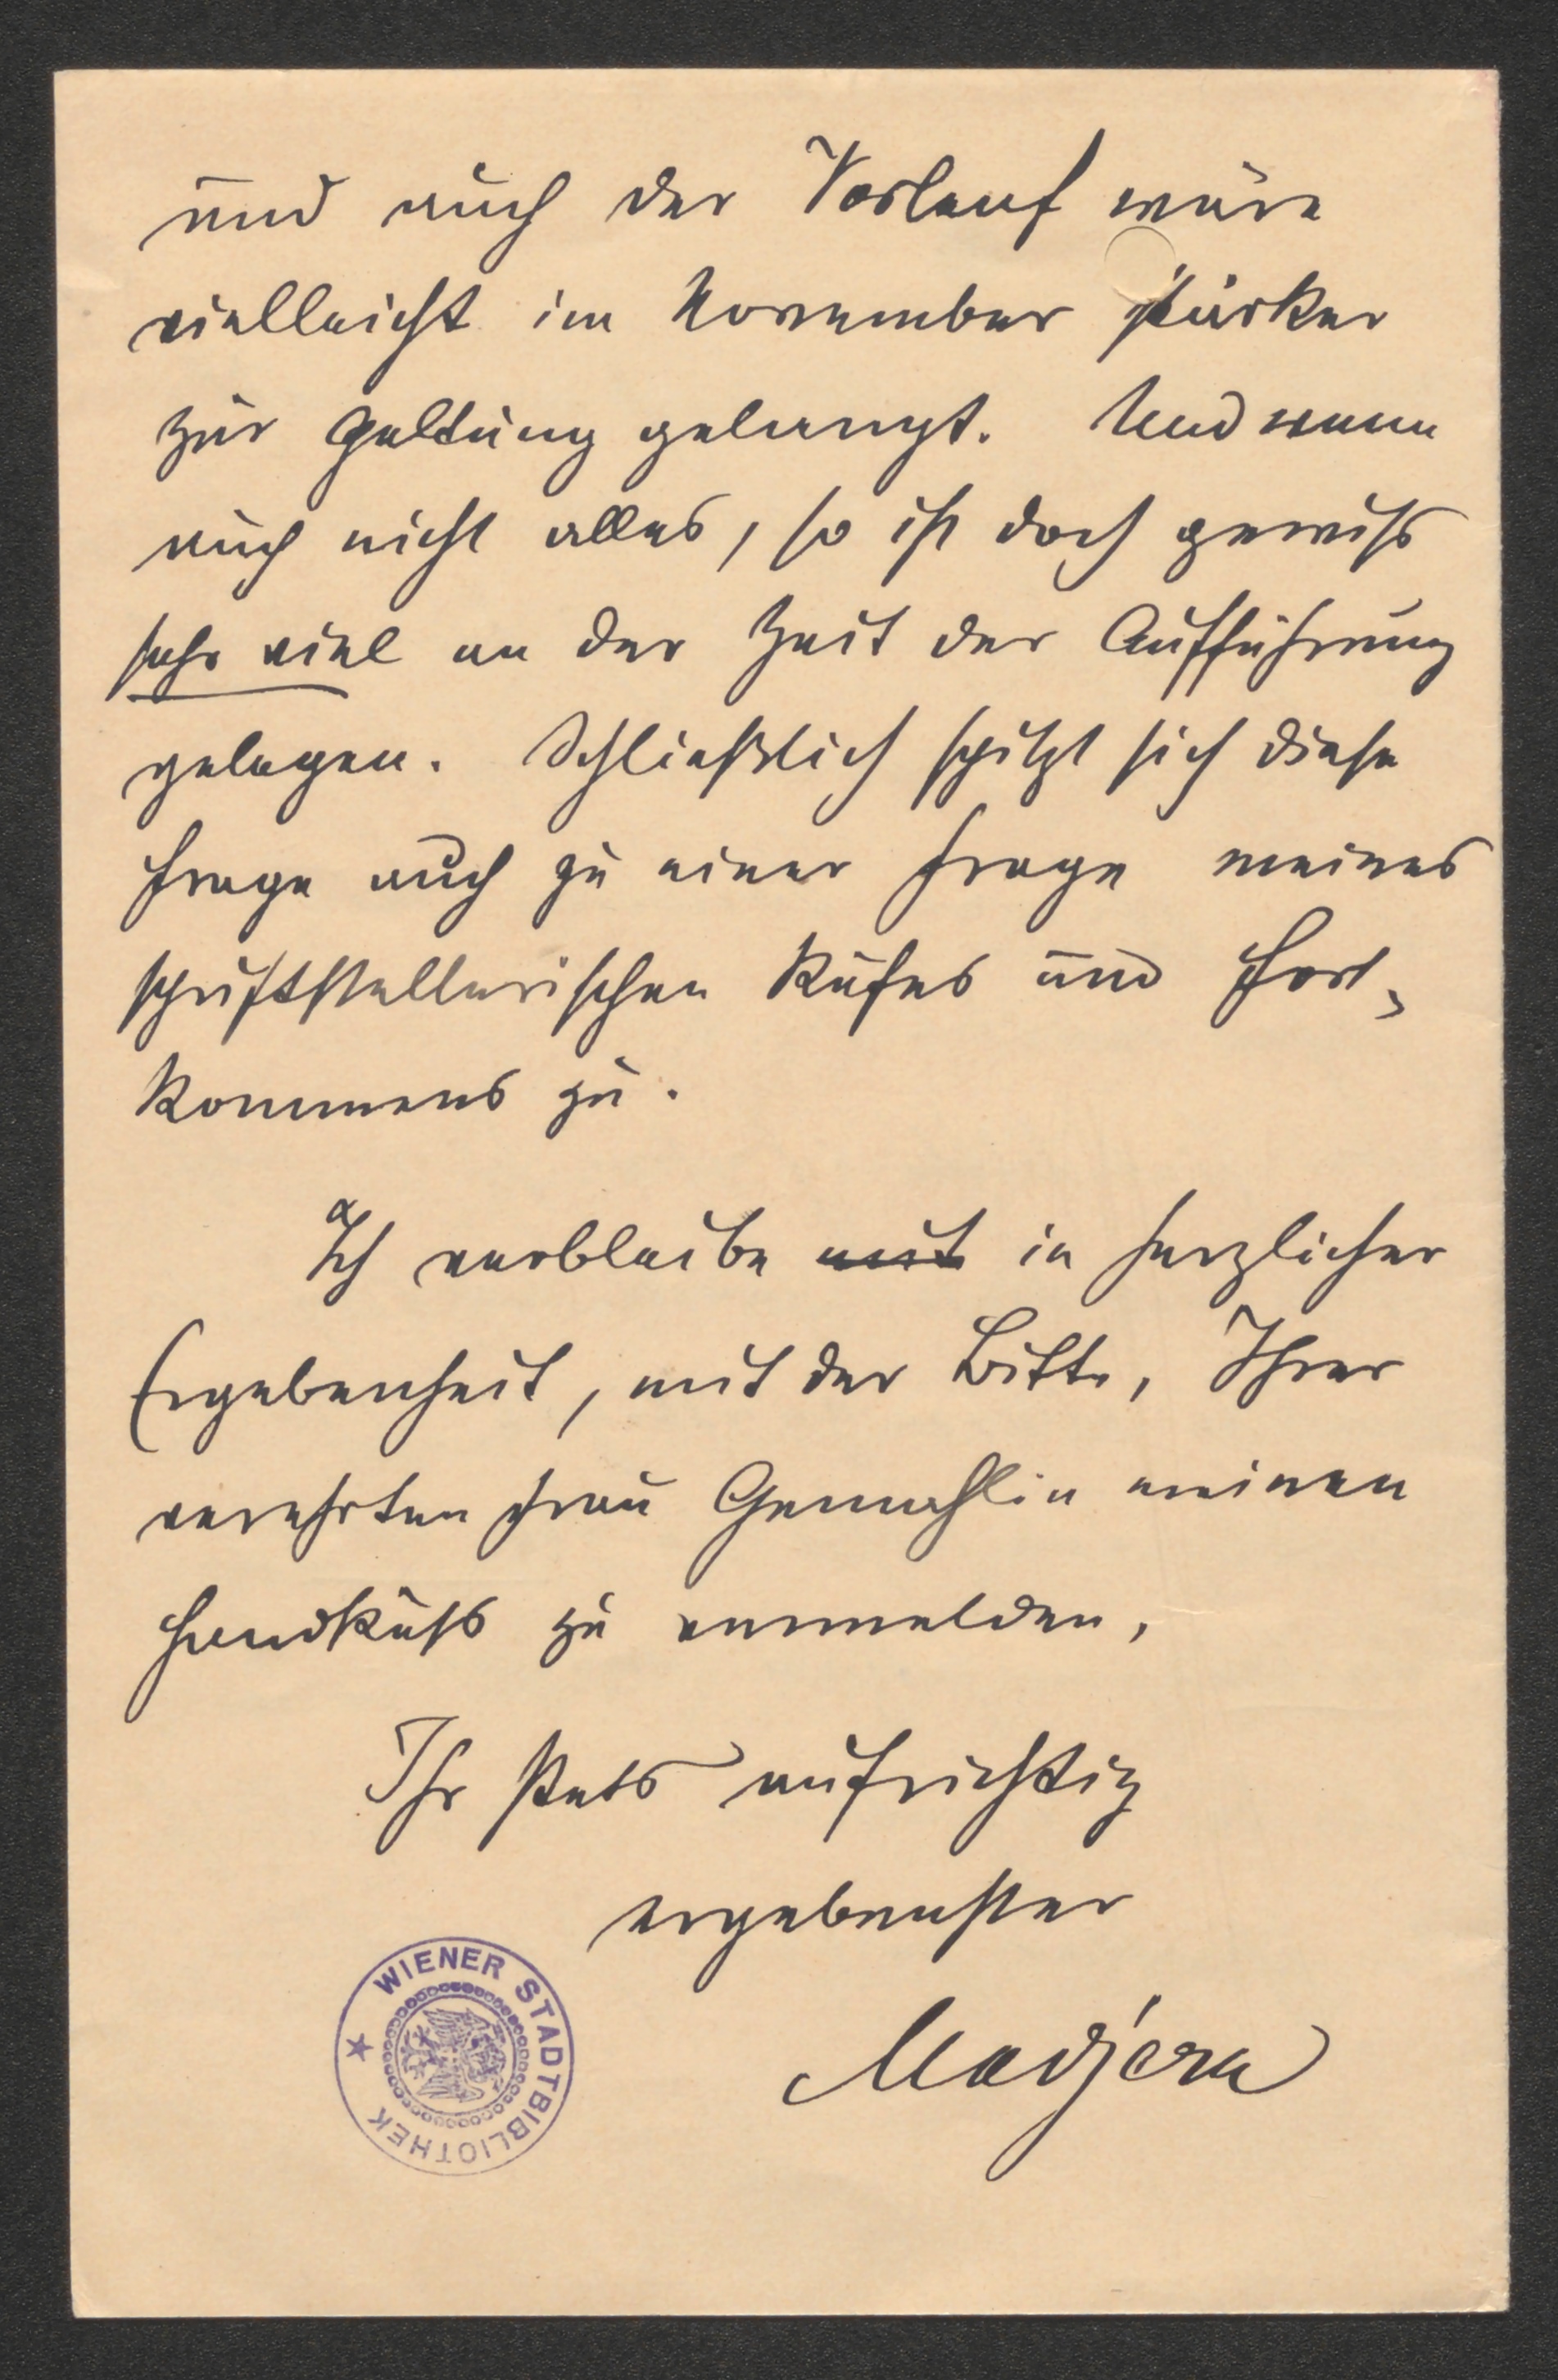 und auch der Verlauf wäre
vielleicht im November stärker
zur Geltung gelangt. Und wenn
auch nicht alles, so ist doch gewiss
sehr viel an der Zeit der Aufführung
gelegen. Schließlich spitzt sich diese
Frage auch zu einer Frage meines
schriftstellerischen Rufes und Fort-
kommens zu.
Ich verbleibe mit in herzlicher
Ergebenheit, mit der Bitte, Ihrer
verehrten Frau Gemahlin meinen
Handkuss zu vermelden,
Ihr stets aufrichtig
ergebenster
Madjera
WIENER STADTBIBLIOTHEK